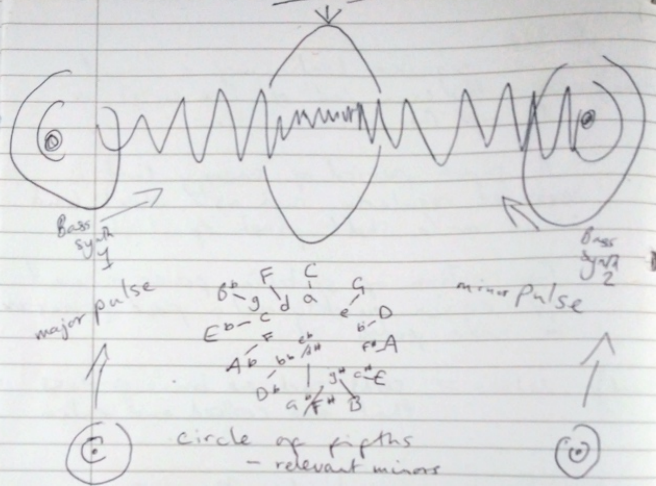 Bass
synth
1
Bass
synth
2
major pulse
minor pulse
C
F
G
Bb
g
d
a
e
D
Eb
c
b
A
f#
Ab
f
Db
bb
eb
g#
c#
E
B
F#
circle of fifths
- relevant minors